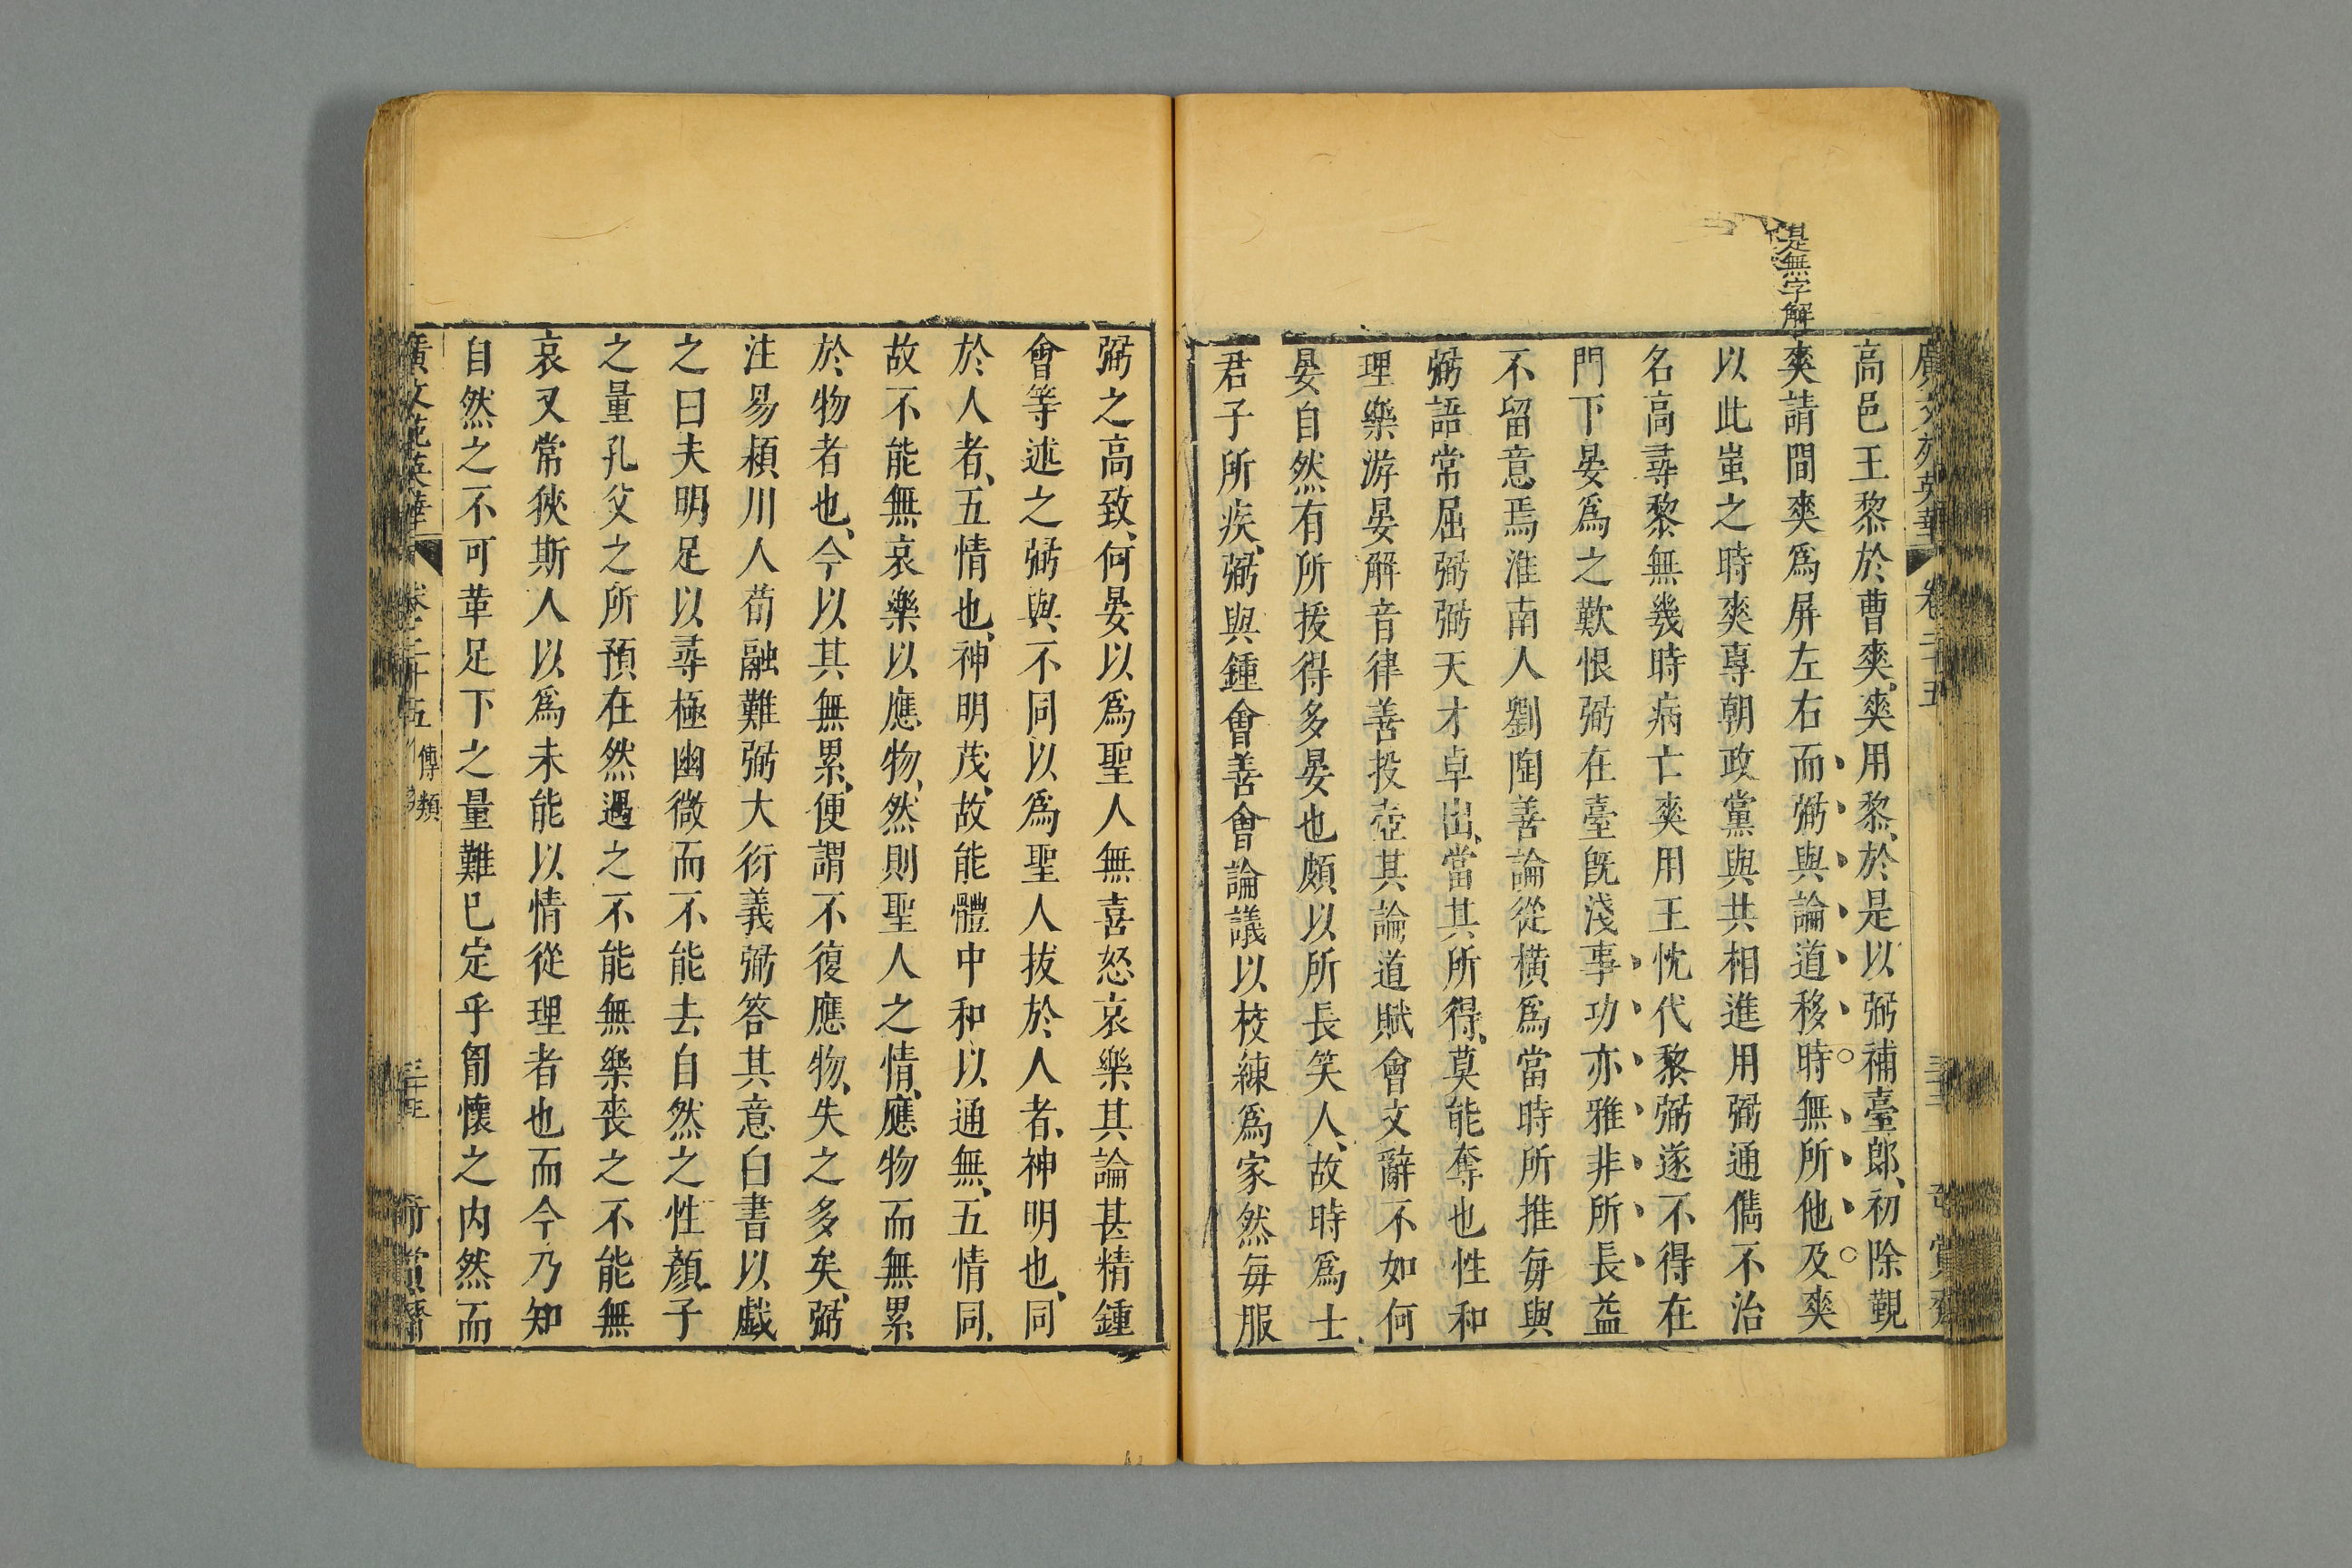 是無字解
廣文苑英華 卷二十五
高邑王黎於曹爽、爽用黎、於是以弼補臺郎、初除覲
爽請間爽爲屏左右而弼與論道移時無所他及爽
以此蚩之時爽專朝政黨與共相進用弼通儁不治
名高尋黎無幾時病亡爽用王忱代黎弼遂不得在
門下晏爲之歎恨弼在臺旣淺事功亦雅非所長益
不留意焉淮南人劉陶善論從橫爲當時所推每與
弼語常屈弼弼天才卓出、當其所得、莫能奪也性和
理樂游晏解音律善投壺其論道賦會文辭不如何
晏自然有所拔得多晏也頗以所長笑人、故時爲士
君子所疾、弼與鍾會善會論議以校練爲家然每服
弼之高致、何晏以爲聖人無喜怒哀樂其論甚精鍾
會等述之弼與不同以爲聖人拔於人者、神明也、同
於人者、五情也、神明茂、故能體中和以通無、五情同、
故不能無哀樂以應物、然則聖人之情、應物而無累
於物者也、今以其無累、便謂不復應物、失之多矣、弼
注易潁川人荀融難弼大衍義弼答其意白書以戲
之曰夫明足以尋極幽微而不能去自然之性顏子
之量孔父之所預在然遇之不能無樂喪之不能無
哀又常狹斯人以爲未能以情從理者也而今乃知
自然之不可革足下之量雖巳定乎胷懷之内然而
廣文苑英華 卷二十五 傳類 奇賞齋